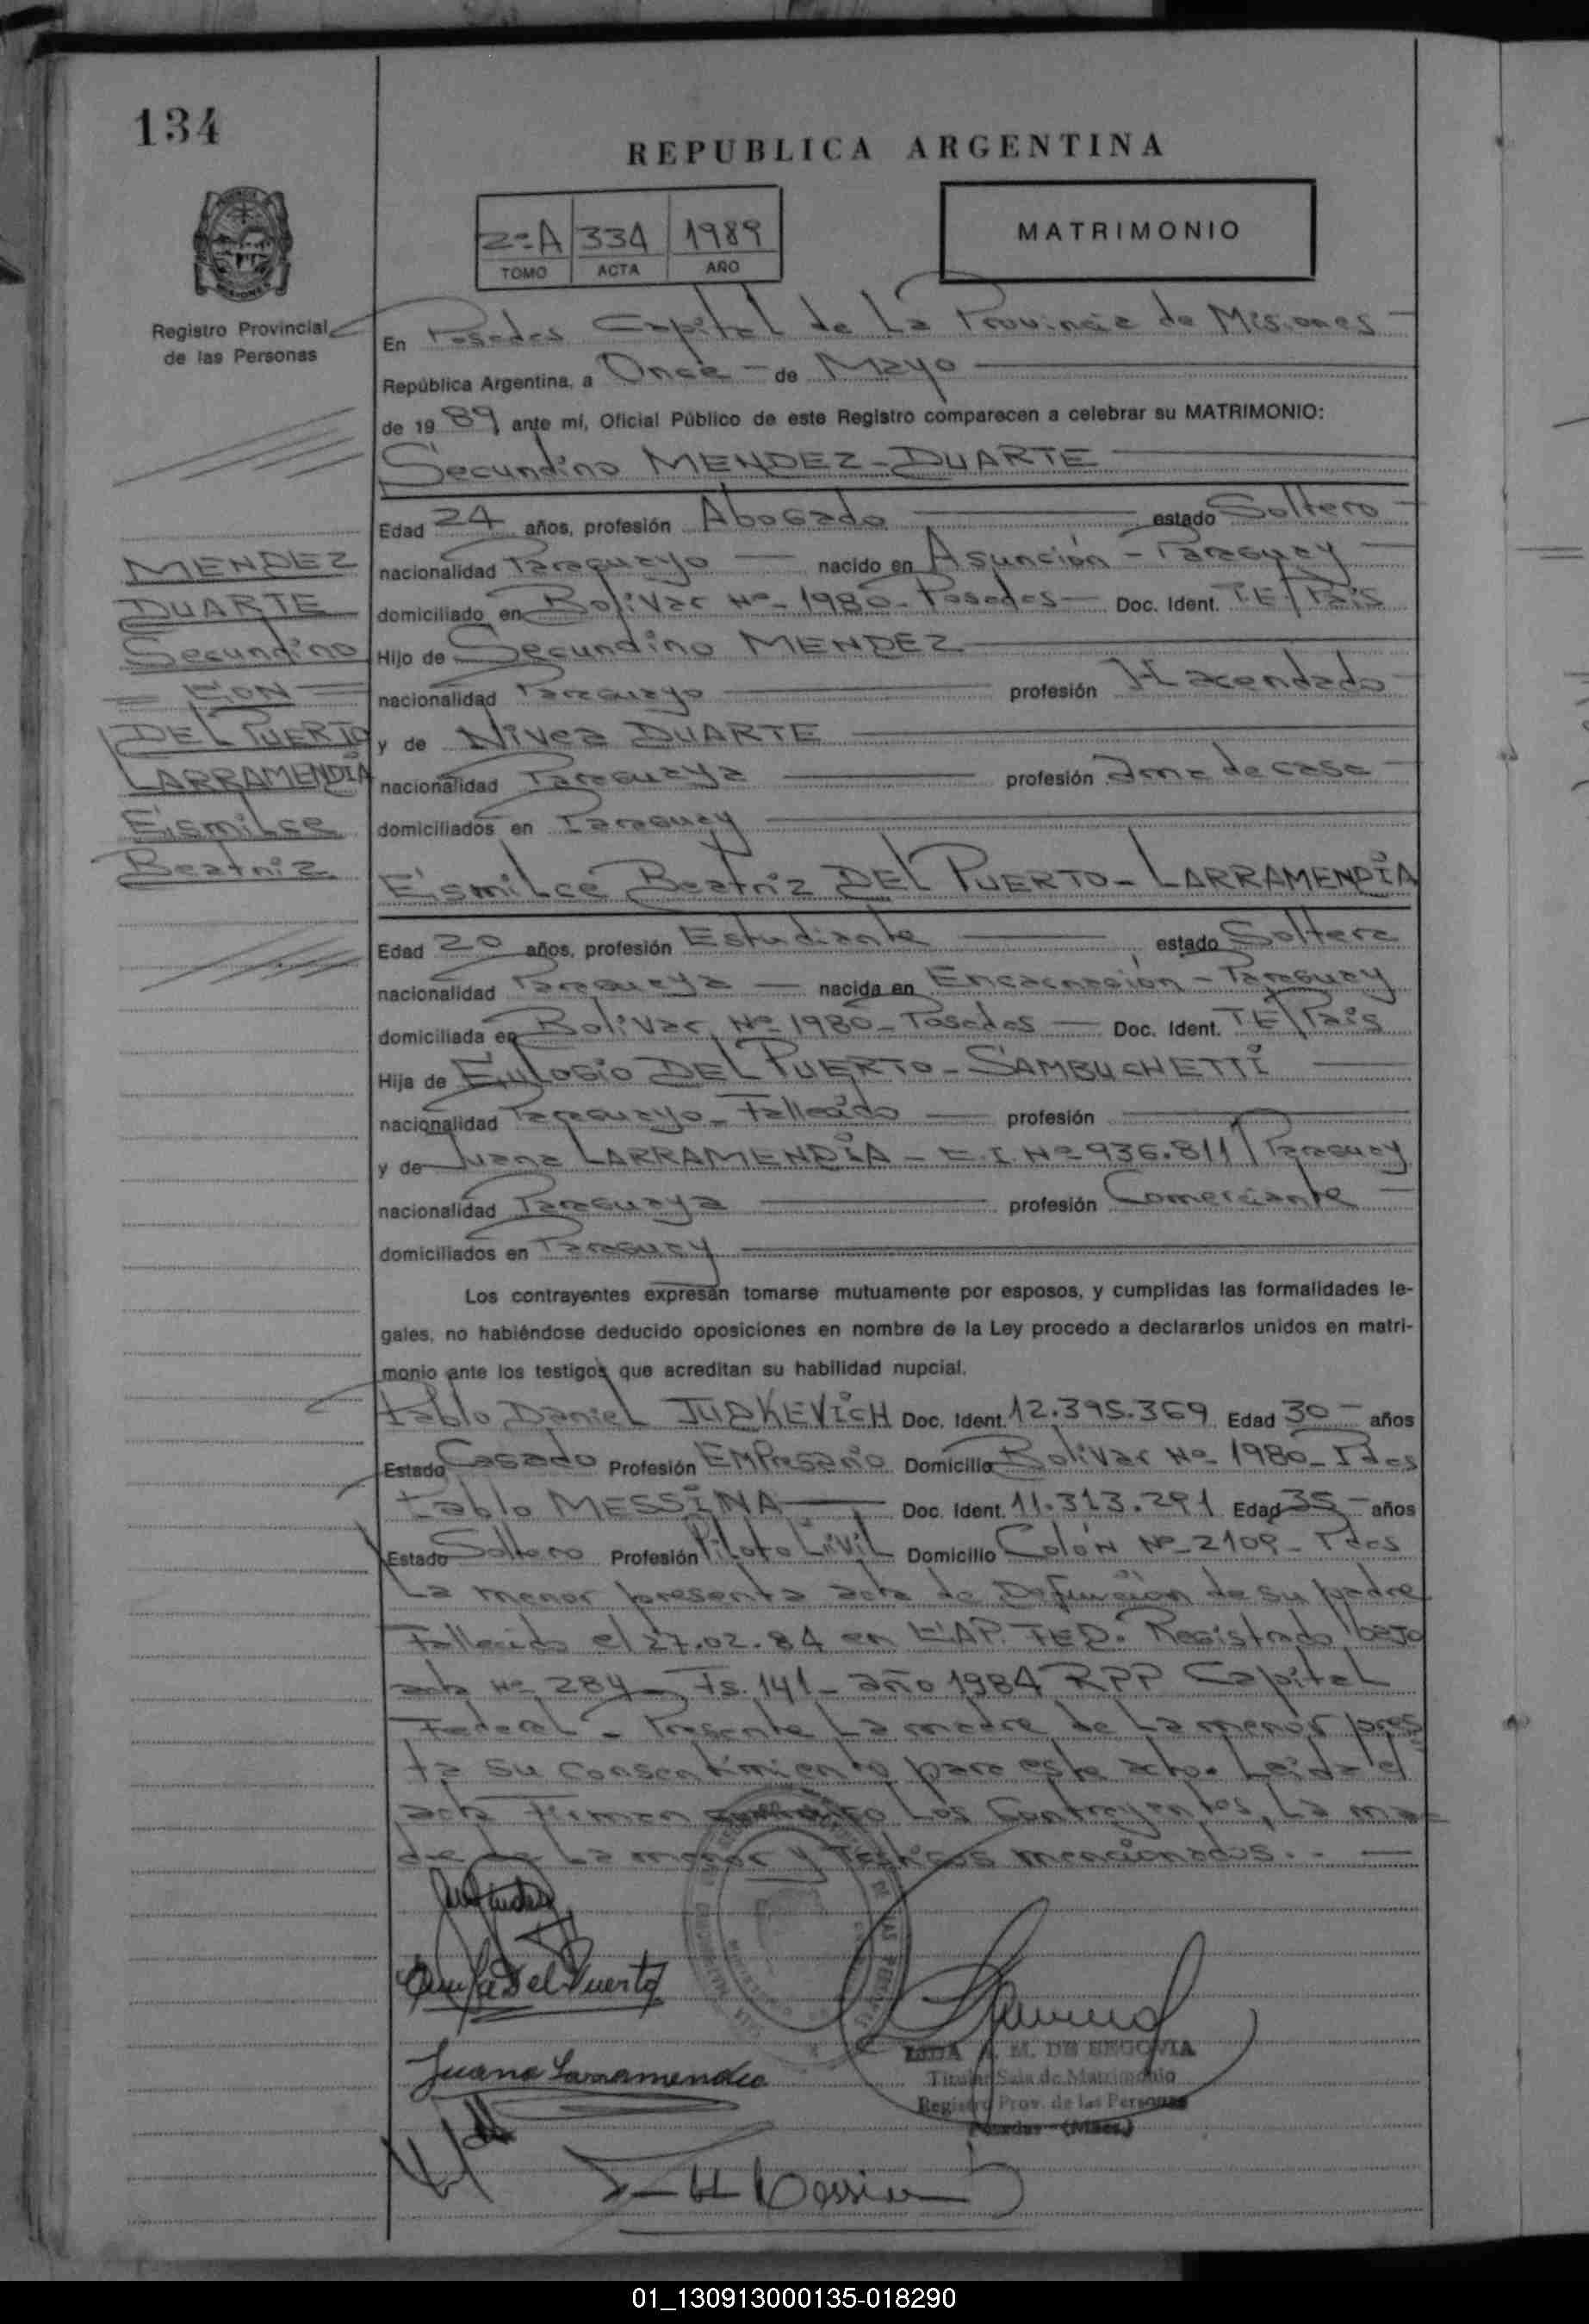 134
REPUBLICA ARGENTINA
2º A 334 1989
TOMO ACTA AÑO
MATRIMONIO
Registro Provincial
de las Personas
En Posadas Capital de La Provincia de Misiones
República Argentina, a Once de Mayo
de 1989, ante mí, Oficial Público de este Registro comparecen a celebrar su MATRIMONIO:
Secundino MENDEZ-DUARTE
Edad 24 años, profesión Abogado estado Soltero
nacionalidad Paraguayo nacido en Asunción - Paraguay
domiciliado en Bolivar Nº 1980 - Posadas Doc. Ident. T.E/Pais
Hijo de Secundino MENDEZ
nacionalidad Paraguayo profesión Hacendado
y de Nivea DUARTE
nacionalidad Paraguaya profesión ama de casa
domiciliados en Paraguay
MENDEZ
DUARTE
Secundino
= CON =
DEL PUERTO
LARRAMENDIA
Esmilce
Beatriz
Esmilce Beatriz DEL PUERTO - LARRAMENDIA
Edad 20 años, profesión Estudiante estado Soltera
nacionalidad Paraguaya nacida en Encarnación - Paraguay
domiciliada en Bolivar Nº 1980 - Posadas Doc. Ident. T.E/Pais
Hija de Eulogio DEL PUERTO - SAMBUCHETTI
nacionalidad Paraguayo - Fallecido profesión
y de Juana LARRAMENDIA - C.I. Nº 936.811/Paraguay
nacionalidad Paraguaya profesión Comerciante
domiciliados en Paraguay
Los contrayentes expresan tomarse mutuamente por esposos, y cumplidas las formalidades le-
gales, no habiéndose deducido oposiciones en nombre de la Ley procedo a declararlos unidos en matri-
monio ante los testigos que acreditan su habilidad nupcial.
Pablo Daniel JUDKEVICH Doc. Ident. 12.395.369 Edad 30 años
Estado Casado Profesión Empresario Domicilio Bolivar Nº 1980 - Pdas
Pablo MESSINA Doc. Ident. 11.313.291 Edad 35 años
Estado Soltero Profesión Piloto Civil Domicilio Colón Nº 2109 - Pdas
La menor presenta acta de Defunción de su padre
Fallecido el 27.02.84 en CAP. FED. Registrado bajo
acta Nº 284 - Fs. 141 - año 1984 RPP Capital
Federal - Presente La madre de La menor pres
ta su consentimiento para este acto. Leida el
acta Firman conmigo Los Contrayentes, La ma-
dre de La menor y Testigos mencionados. -
Del Puerto
Juana Larramendia
M. DE SEGOVIA
Titular Sala de Matrimonio
Registro Prov. de las Personas
Posadas - (Mnes.)
01_130913000135-018290